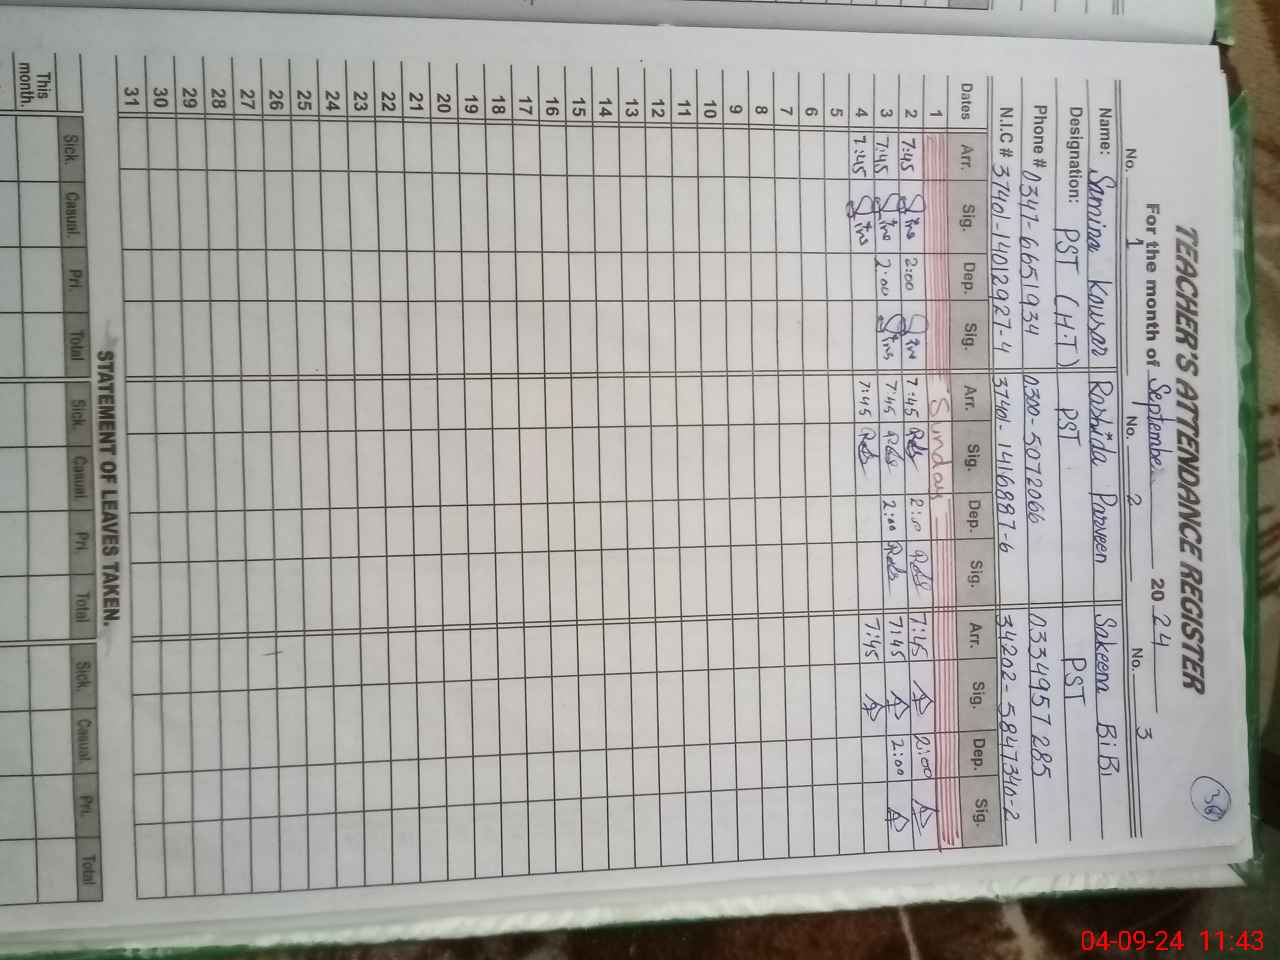 36
TEACHER'S ATTENDANCE REGISTER
For the month of September 2024
No. 1 No. 2 No. 3
Name: Samina Kousar Rashida Parveen Sakeena BiBi
Designation: PST (H.T) PST PST
Phone # 0347-6651934 0300-5072066 0334957285
N.I.C # 37401-14012927-4 37401-1416887-6 34202-5847340-2
Dates Arr. Sig. Dep. Sig. Arr. Sig. Dep. Sig. Arr. Sig. Dep. Sig.
1 Sunday
2 7:45 2:00 7:45 2:00 7:45 2:00
3 7:45 2:00 7:45 2:00 7:45 2:00
4 7:45 7:45 7:45
5
6
7
8
9
10
11
12
13
14
15
16
17
18
19
20
21
22
23
24
25
26
27
28
29
30
31
STATEMENT OF LEAVES TAKEN.
Sick. Casual. Pri. Total Sick. Casual Pri. Total Sick. Casual Pri. Total
This month.
04-09-24 11:43